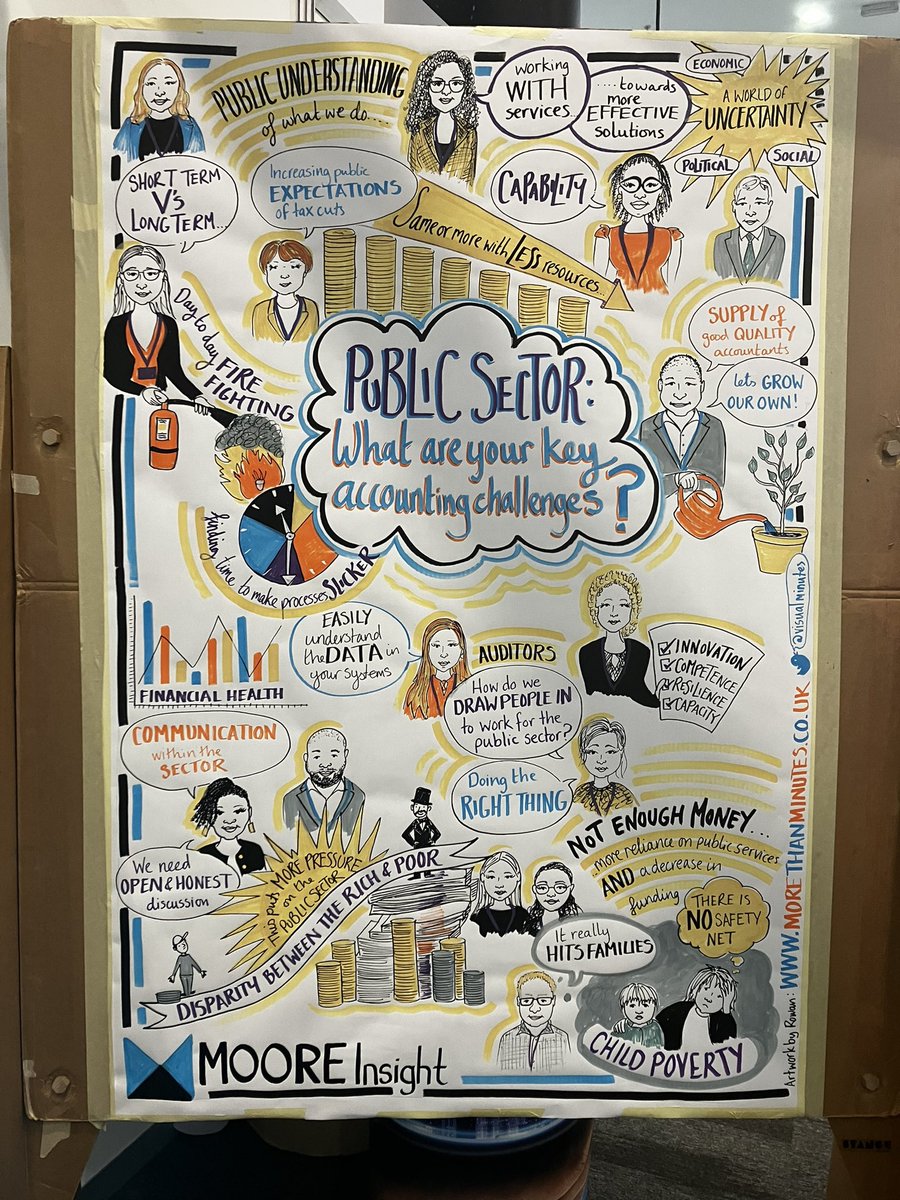 PUBLIC UNDERSTANDING
of what we do....
working
WITH
services...
....towards
more
EFFECTIVE
solutions
ECONOMIC
A WORLD OF
UNCERTAINTY
POLITICAL
SOCIAL
SHORT TERM
V's
LONG TERM...
Increasing public
EXPECTATIONS
of tax cuts
CAPABILITY
Same or more with LESS resources
Day to day FIRE
FIGHTING
SUPPLY of
good QUALITY
accountants
lets GROW
OUR OWN!
PUBLIC SECTOR:
What are your key
accounting challenges?
finding time to make processes SLICKER
@visualminutes
FINANCIAL HEALTH
EASILY
understand
the DATA in
your systems
AUDITORS
How do we
DRAW PEOPLE IN
to work for the
public sector?
INNOVATION
COMPETENCE
RESILIENCE
CAPACITY
COMMUNICATION
within the
SECTOR
Doing the
RIGHT THING
We need
OPEN & HONEST
discussion
This puts MORE PRESSURE
on the
PUBLIC SECTOR
DISPARITY BETWEEN THE RICH & POOR
NOT ENOUGH MONEY...
...more reliance on public services
AND a decrease in
funding
THERE IS
NO SAFETY
NET
It really
HITS FAMILIES
CHILD POVERTY
MOORE Insight
Artwork by Rowan: WWW.MORETHANMINUTES.CO.UK